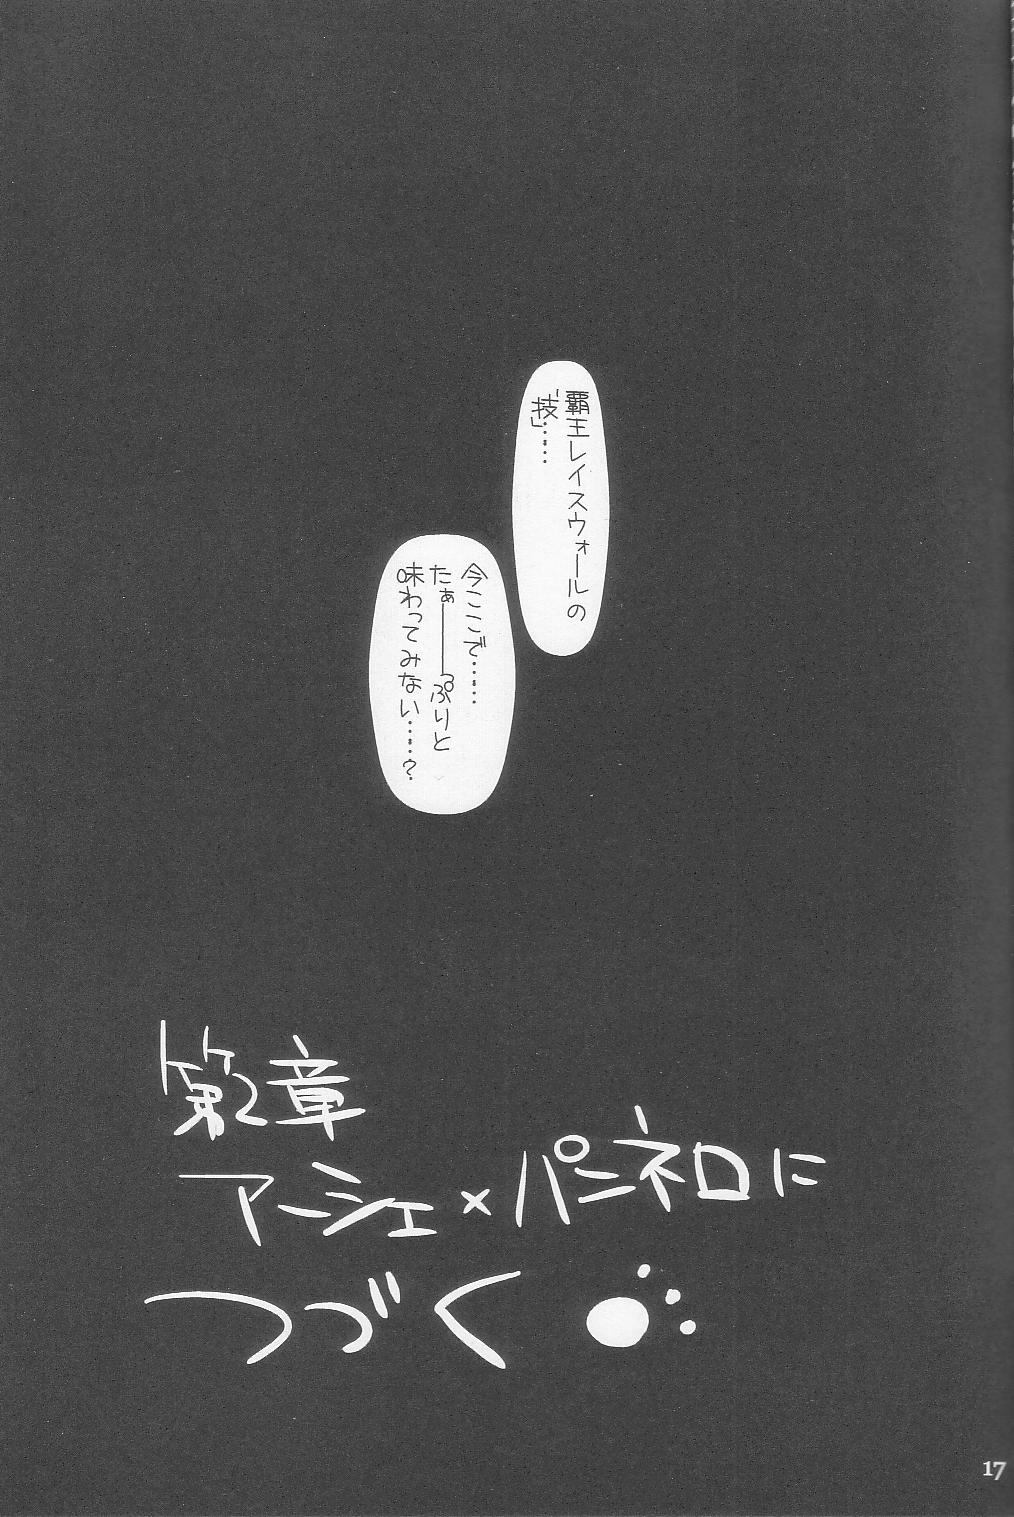 覇王レイスウォールの
「技」……
今ここで……
たぁ――っぷりと
味わってみない……?
第2章
アーシェ×パンネロに
つづく
17